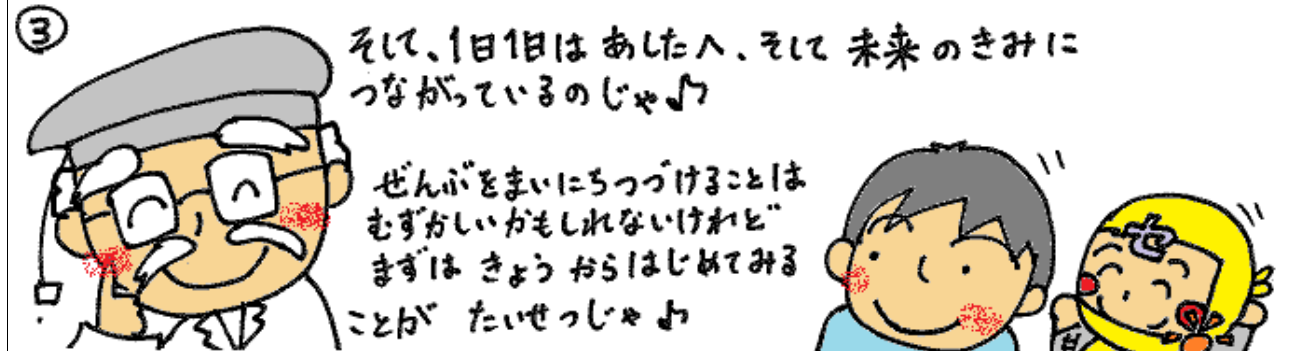 ③
そして、1日1日は あしたへ、そして 未来 のきみに
つながっているのじゃ♪
ぜんぶをまいにちつづけることは
むずかしいかもしれないけれど
まずは きょう からはじめてみる
ことが たいせつじゃ♪
セ